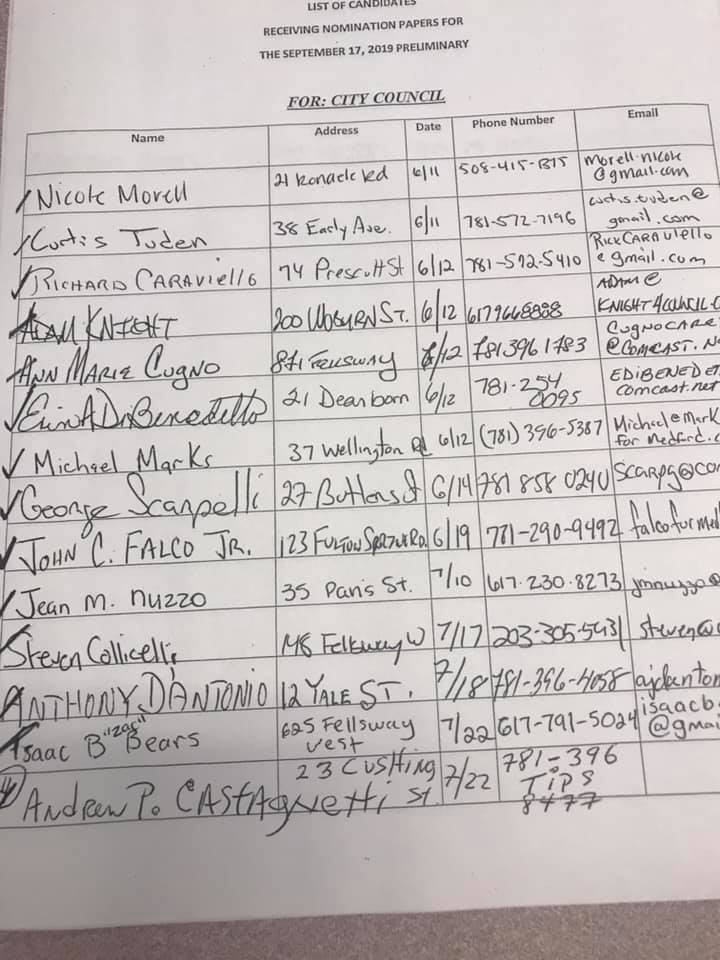 LIST OF CANDIDATES
RECEIVING NOMINATION PAPERS FOR
THE SEPTEMBER 17, 2019 PRELIMINARY
FOR: CITY COUNCIL
Name Address Date Phone Number Email
Nicole Morell 21 Ronaele Rd 6/11 508-415-1315 morell.nicole
@gmail.com
Curtis Tuden 38 Early Ave. 6/11 781-572-7196 curtis.tuden@
gmail.com
RICHARD CARAVIELLO 74 Prescott St 6/12 781-592-5410 RICKCARAVIELLO
@gmail.com
ADAM KNIGHT 200 WOBURN ST. 6/12 6179668888 ADAM@
KNIGHT4COUNCIL.C
ANN MARIE CUGNO 871 FELLSWAY 6/12 7813961783 CUGNOCARE
@COMCAST.N
Erin A DiBenedetto 21 Dearborn 6/12 781-254 EDIBENEDET
0095 comcast.net
Michael Marks 37 Wellington Rd 6/12 (781) 396-5387 Michael@Mark
for Medford.c
George Scarpelli 27 Buttons St 6/14 781 858 0240 Scarpg@co
JOHN C. FALCO JR. 123 FULTON SPRING RD. 6/19 781-290-9492 falcoformed
Jean M. Nuzzo 35 Paris St. 7/10 617.230.8273 jmnuzzo@
Steven Collicelli Fellsway W 7/17 203-305-5431 steven@
ANTHONY D'ANTONIO 12 YALE ST. 7/18 781-396-4058 ajdanton
Isaac B "Zac" Bears 625 Fellsway 7/22 617-791-5024 isaacb.
West @gmai
Andrew P. CASTAGNETTI 23 CUSHING 7/22 781-396
St. TiPS
8477